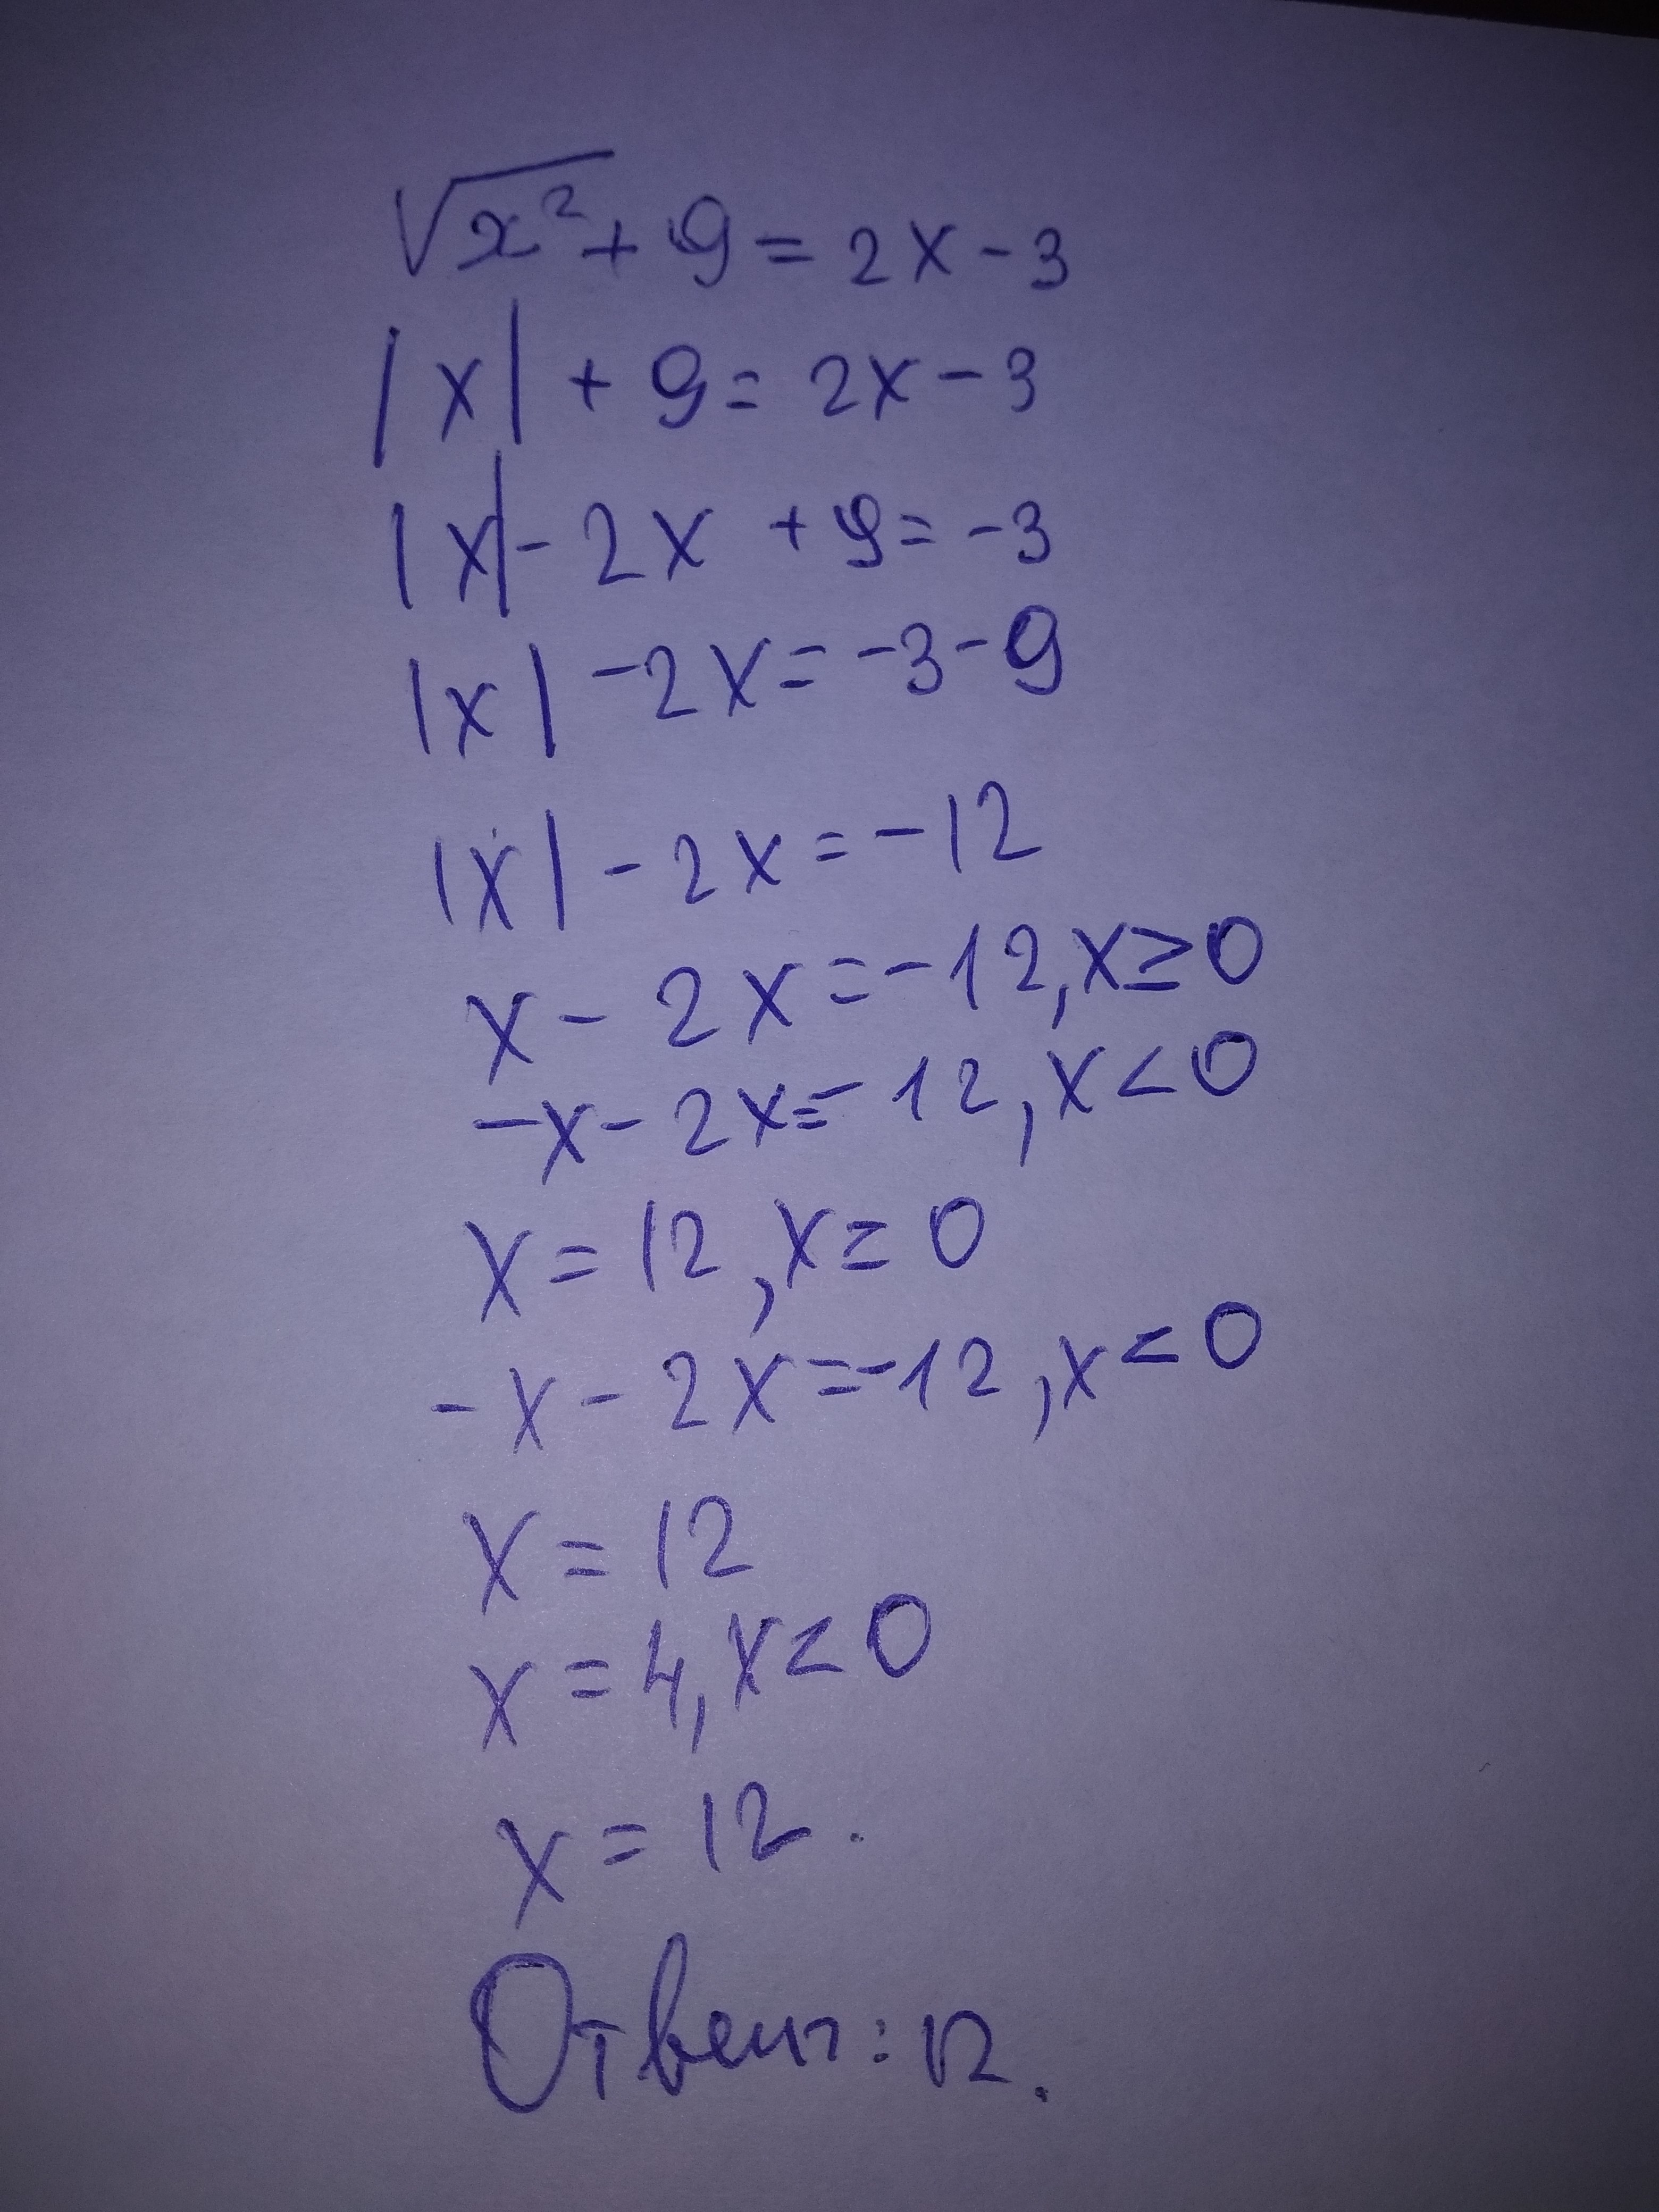 √x² + 9 = 2x - 3
|x| + 9 = 2x - 3
|x| - 2x + 9 = -3
|x| - 2x = -3 - 9
|x| - 2x = -12
x - 2x = -12, x ≥ 0
-x - 2x = -12, x < 0
x = 12, x ≥ 0
-x - 2x = -12, x < 0
x = 12
x = 4, x < 0
x = 12.
Ответ: 12.